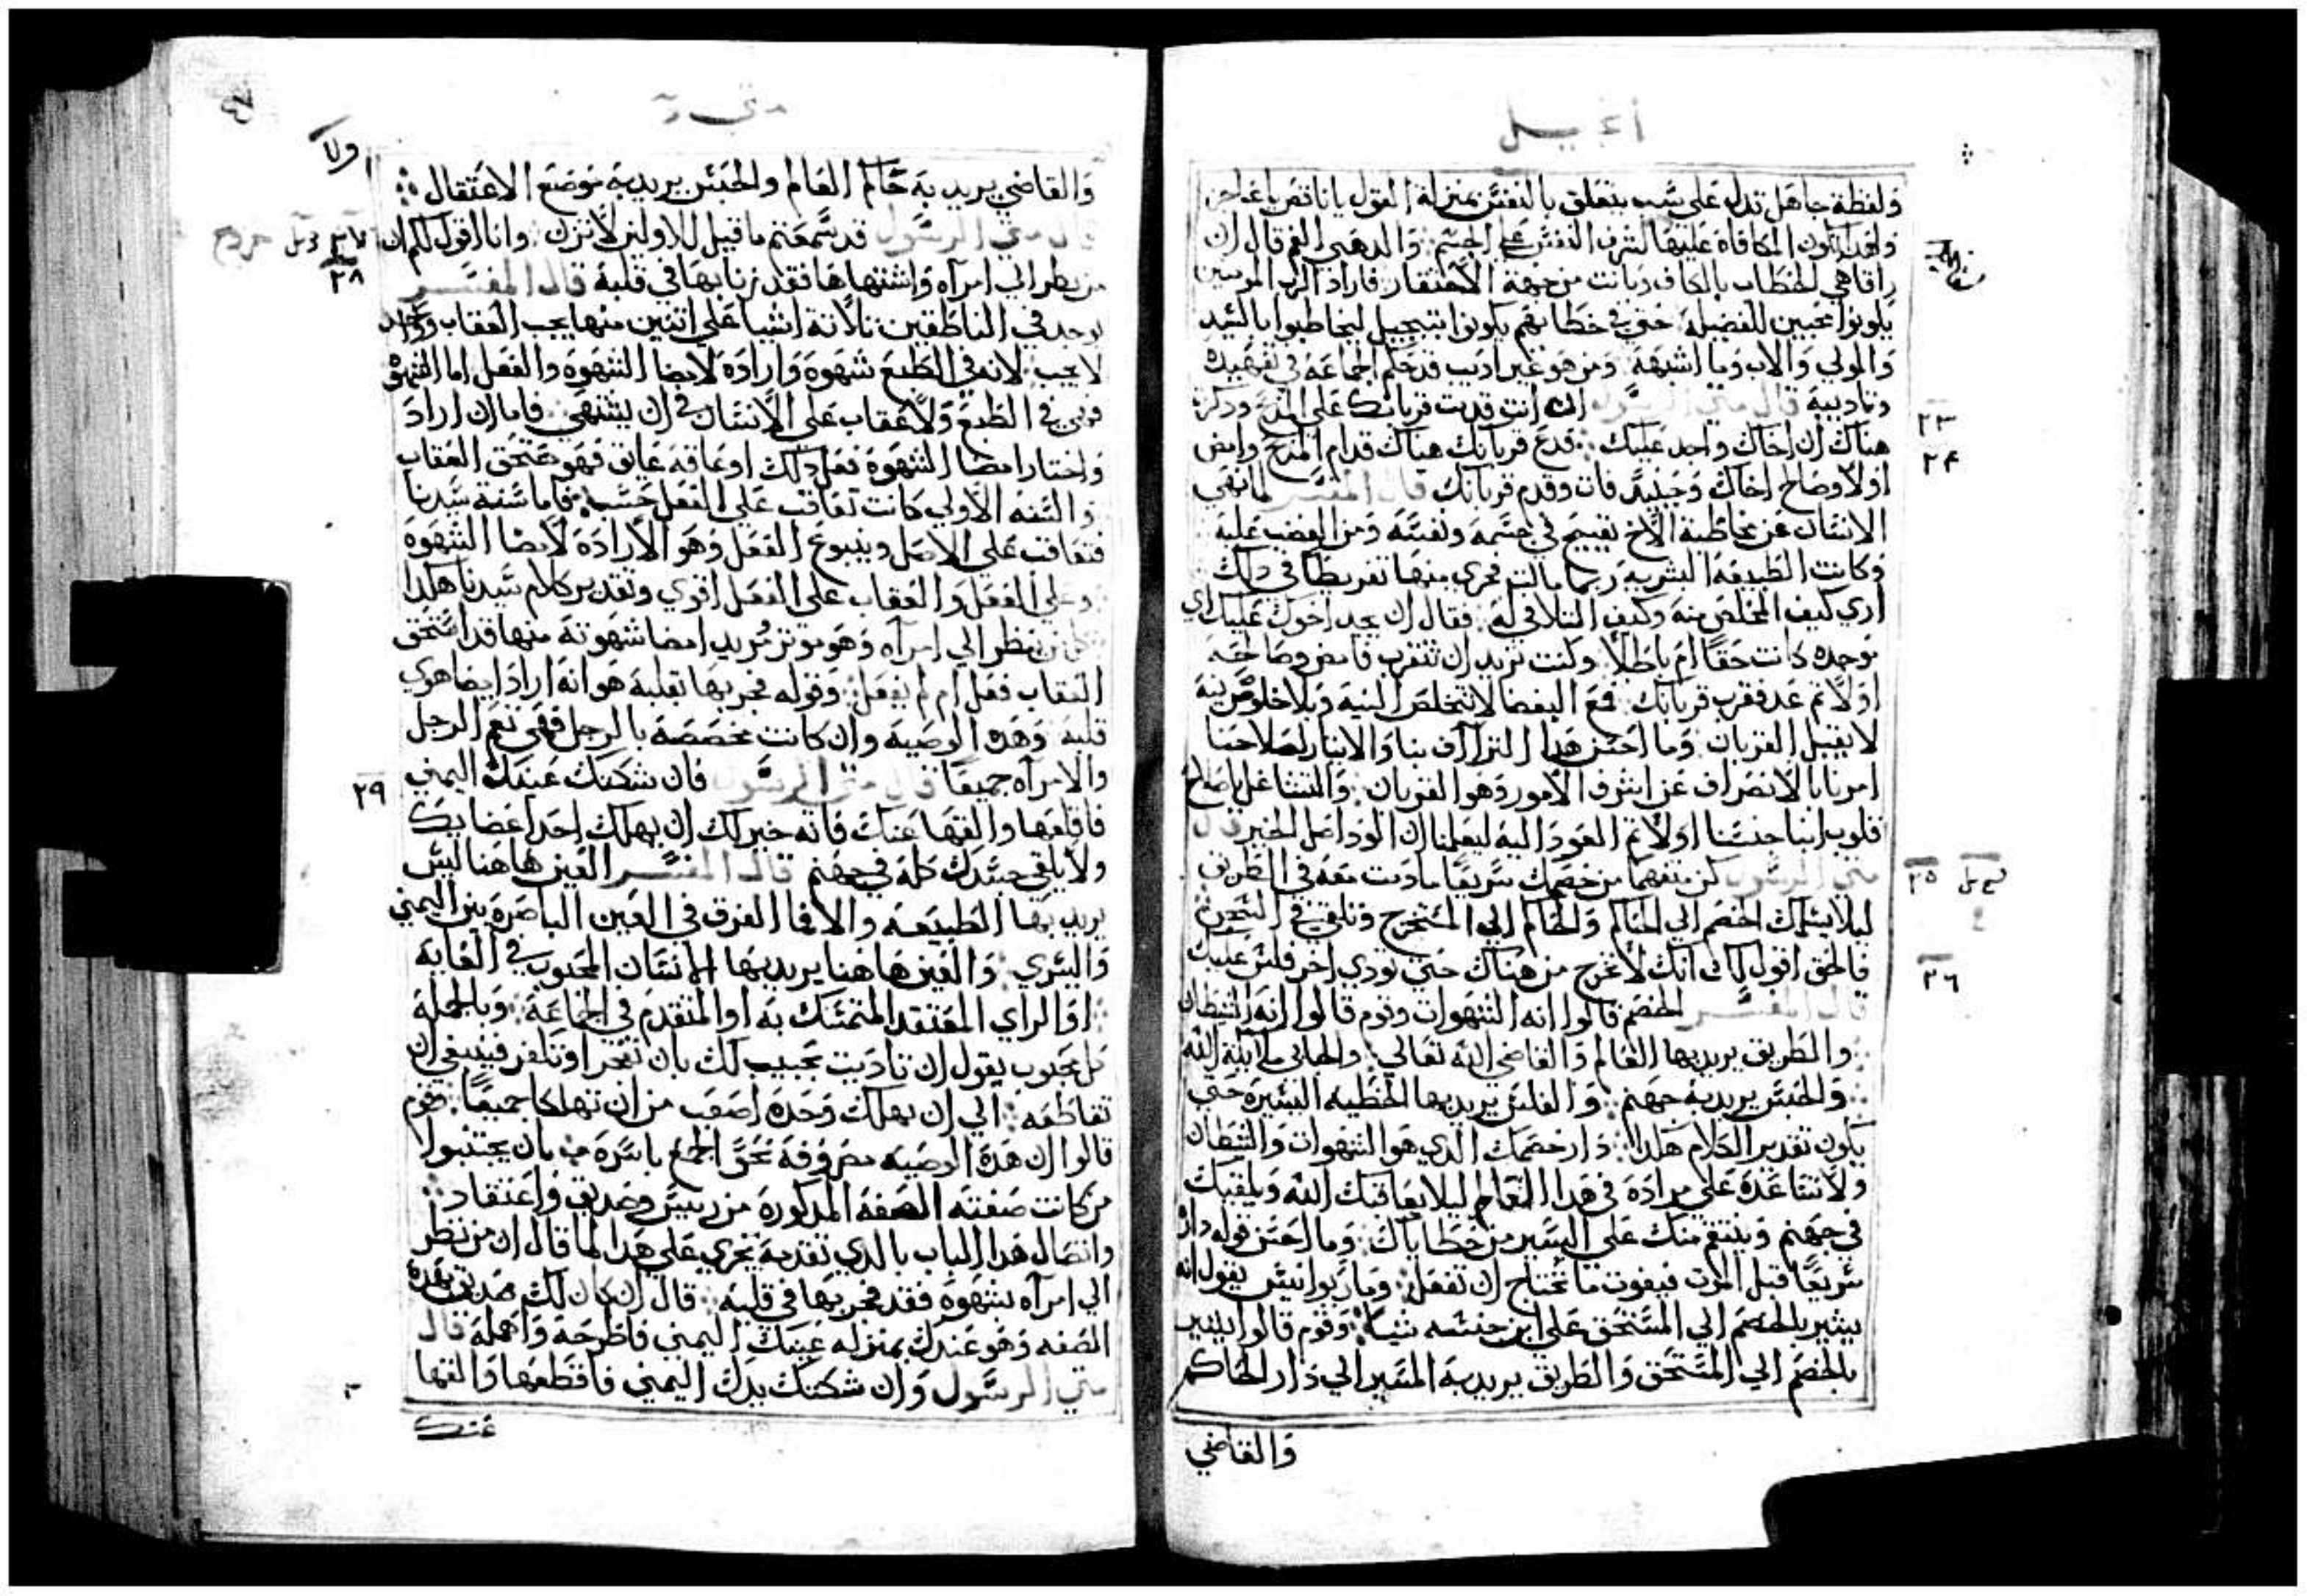 انجيل
ولفظة جاهل تدل على سب يتعلق بالنفس بمنزلة القول يا ناقص يا عاجز
راقا هي الخطاب بالكاف وبانت من جهة الاحتقار فاراد الرب المومنين
يكونوا محبين للفضيلة حتى في خطابهم يكونوا بتبجيل ليخاطبوا بالسيد
والمولي والاب وما اشبهه ومن هو غير اديب قد حكم الجماعة في تقبيده
وتاديبه قال متي الرسول ان انت قدمت قربانك على المدبح ودكرت
هناك ان اخاك واجد عليك فدع قربانك هناك قدام المدبح وامض
اولا وصالح اخاك وحينيد فات وقدم قربانك قال المفسر لما نهى
الانسان عن مخاطبة الاخ بقبيح في جسمه ونفسه ومن الغضب عليه
وكانت الطبيعة البشرية ربما مالت فجرى منها تفريطا في دلك
اري كيف المخلص منه وكيف التلافي له فقال ان يجد اخوك عليك اي
موجده كانت حقا ام باطلا وكنت تريد ان تتقرب فامض وصالحه
اولا ثم عد فقرب قربانك فمع البغضا لا تتخلص النية وبلا خلوص نية
لا يقبل القربان وما احسن هدا التراآف بنا والايثار لصلاحنا
امرنا بالانصراف عن اشرف الامور وهو القربان والتشاغل باصلاح
قلوب ابنا جنسنا اولا ثم العود اليه ليعلمنا ان الود اصل الخير قال
متي الرسول كن متفهما من خصمك سريعا ما دمت معه في الطريق
ليلا يسلمك الخصم الي الحاكم والحاكم الي المستخرج وتلقي في السجن
فالحق اقول لك انك لا تخرج من هناك حتى تودي اخر فلس عليك
قال المفسر الخصم قالوا انه الشهوات وقوم قالوا انه الشيطان
والطريق يريد بها العالم والقاضي الله تعالي والجابي ملايكة الله
والحبس يريد به جهنم والفلس يريد بها الخطيه اليسيرة حتى
يكون تقدير الكلام هكدا دار خصمك الدي هو الشهوات والشيطان
ولا تساعده على مراده في هدا العالم ليلا يعاقبك الله ويلقيك
في جهنم وينتقم منك على اليسير من خطاياك وما احسن قوله داره
سريعا قبل الموت فيفوت ما تحتاج ان تفعل وماريوانيس يقول انه
يشير بالخصم الي المستحق على ابن جنسه شيا وقوم قالوا يشير
بالخصم الي المستحق والطريق يريد به المسير الي دار الحاكم
والقاضي
٢٣
٢٤
٢٥
٢٦
متي
والقاضي يريد به حاكم العالم والحبس يريد به موضع الاعتقال
قال متي الرسول قد سمعتم ما قيل للاولين لا تزن وانا اقول لكم ان
من نظر الي امرآه واشتهاها فقد زنا بها في قلبه قال المفسر
يوجد في الناطقين تلاتة اشيا على اتنين منها يجب العقاب وواحد
لا يجب لانه في الطبع شهوة وارادة لامضا الشهوة والفعل اما الشهوة
فهي في الطبع ولا عقاب على الانسان في ان يشتهي فاما ان اراد
واختار امضا الشهوة فعل دلك او عاقه عايق فهو مستحق العقاب
والسنه الاولي كانت تعاقب على الفعل حسب فاما سنة سيدنا
فتعاقب على الاصل وينبوع الفعل وهو الارادة لامضا الشهوة
وعلي الفعل والعقاب علي الفعل اقوي وتقدير كلام سيدنا هكدا
كل من ينظر الي امرآه وهو موتر مريد امضا شهوته منها قد استحق
العقاب فعل ام لم يفعل وقوله فجر بها بقلبه هو انه اراد امضا هوي
قلبه وهده الوصية وان كانت مخصصة بالرجل فهي تعم الرجل
والامرآه جميعا قال متي الرسول فان شككتك عينك اليمني
فاقلعها والقها عنك فانه خير لك ان يهلك احد اعضايك
ولا يلقي جسدك كله في جهنم قال المفسر العين هاهنا ليس
يريد بها الطبيعيه والا فما الفرق في العين الباصرة بين اليمني
واليسري والعين هاهنا يريد بها الانسان المحبوب في الغاية
او الراي المعتقد المتمسك به او المتقدم في الجماعة وبالجملة
كل محبوب يقول ان تاديت بحبيب لك بان تفجر او تكفر فينبغي ان
تقاطعه الي ان يهلك وحده اصعب من ان تهلكا جميعا وقوم
قالوا ان هده الوصيه مصروفة نحو الجمع باسره بان يجتنبوا
من كانت صفته الصفة المدكورة من رييس وصديق واعتقاد
واتصال هدا الباب بالدي تقدمه يجري على هدا لما قال ان من نظر
الي امرآه بشهوة فقد فجر بها في قلبه قال ان كان لك صديق بهده
الصفه وهو عندك بمنزله عينك اليمني فاطرحه واهمله قال
متي الرسول وان شككتك يدك اليمني فاقطعها والقها
عنك
٢٨
٢٩